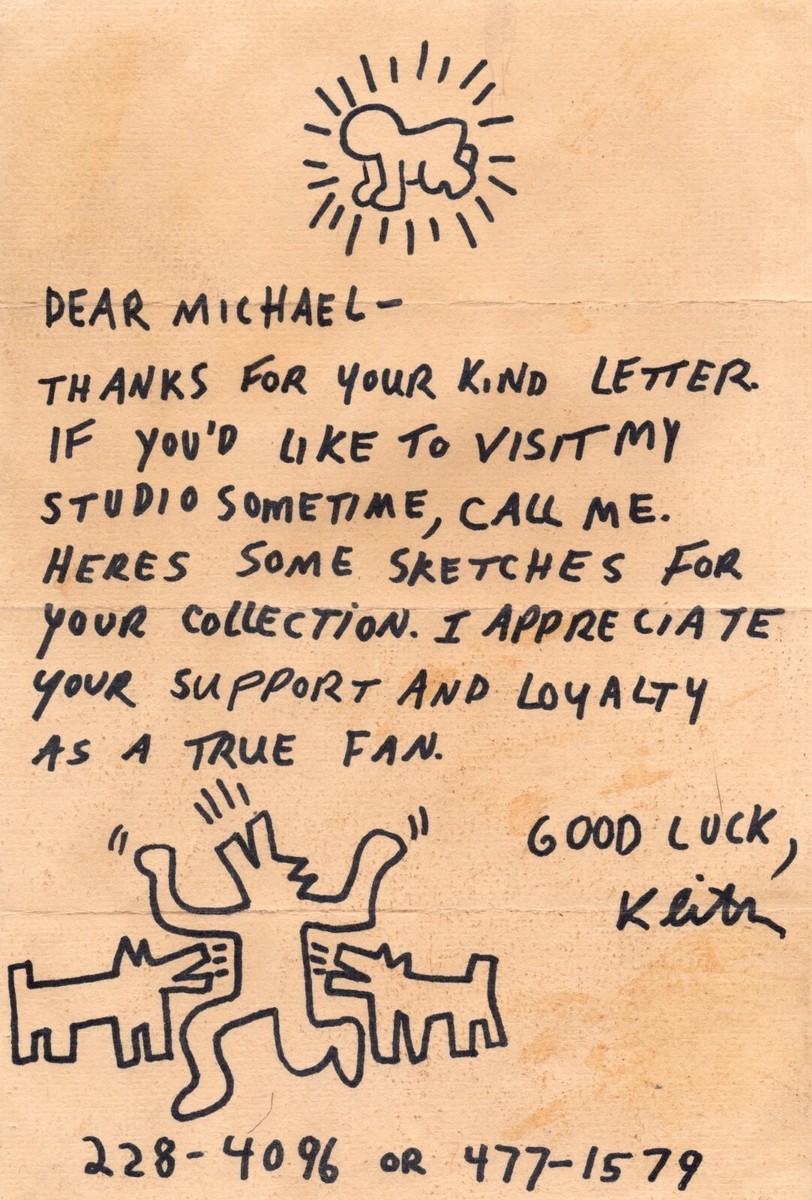 DEAR MICHAEL-
THANKS FOR YOUR KIND LETTER.
IF YOU'D LIKE TO VISIT MY
STUDIO SOMETIME, CALL ME.
HERES SOME SKETCHES FOR
YOUR COLLECTION. I APPRECIATE
YOUR SUPPORT AND LOYALTY
AS A TRUE FAN.
GOOD LUCK,
Keith
228-4096 OR 477-1579